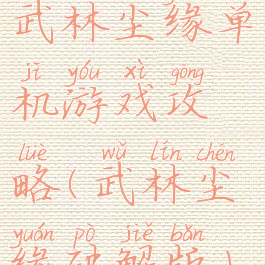 武林尘缘单
jī yóu xì gōng
机游戏攻
lüè wǔ lín chén
略(武林尘
yuán pò jiě bǎn
缘破解版)